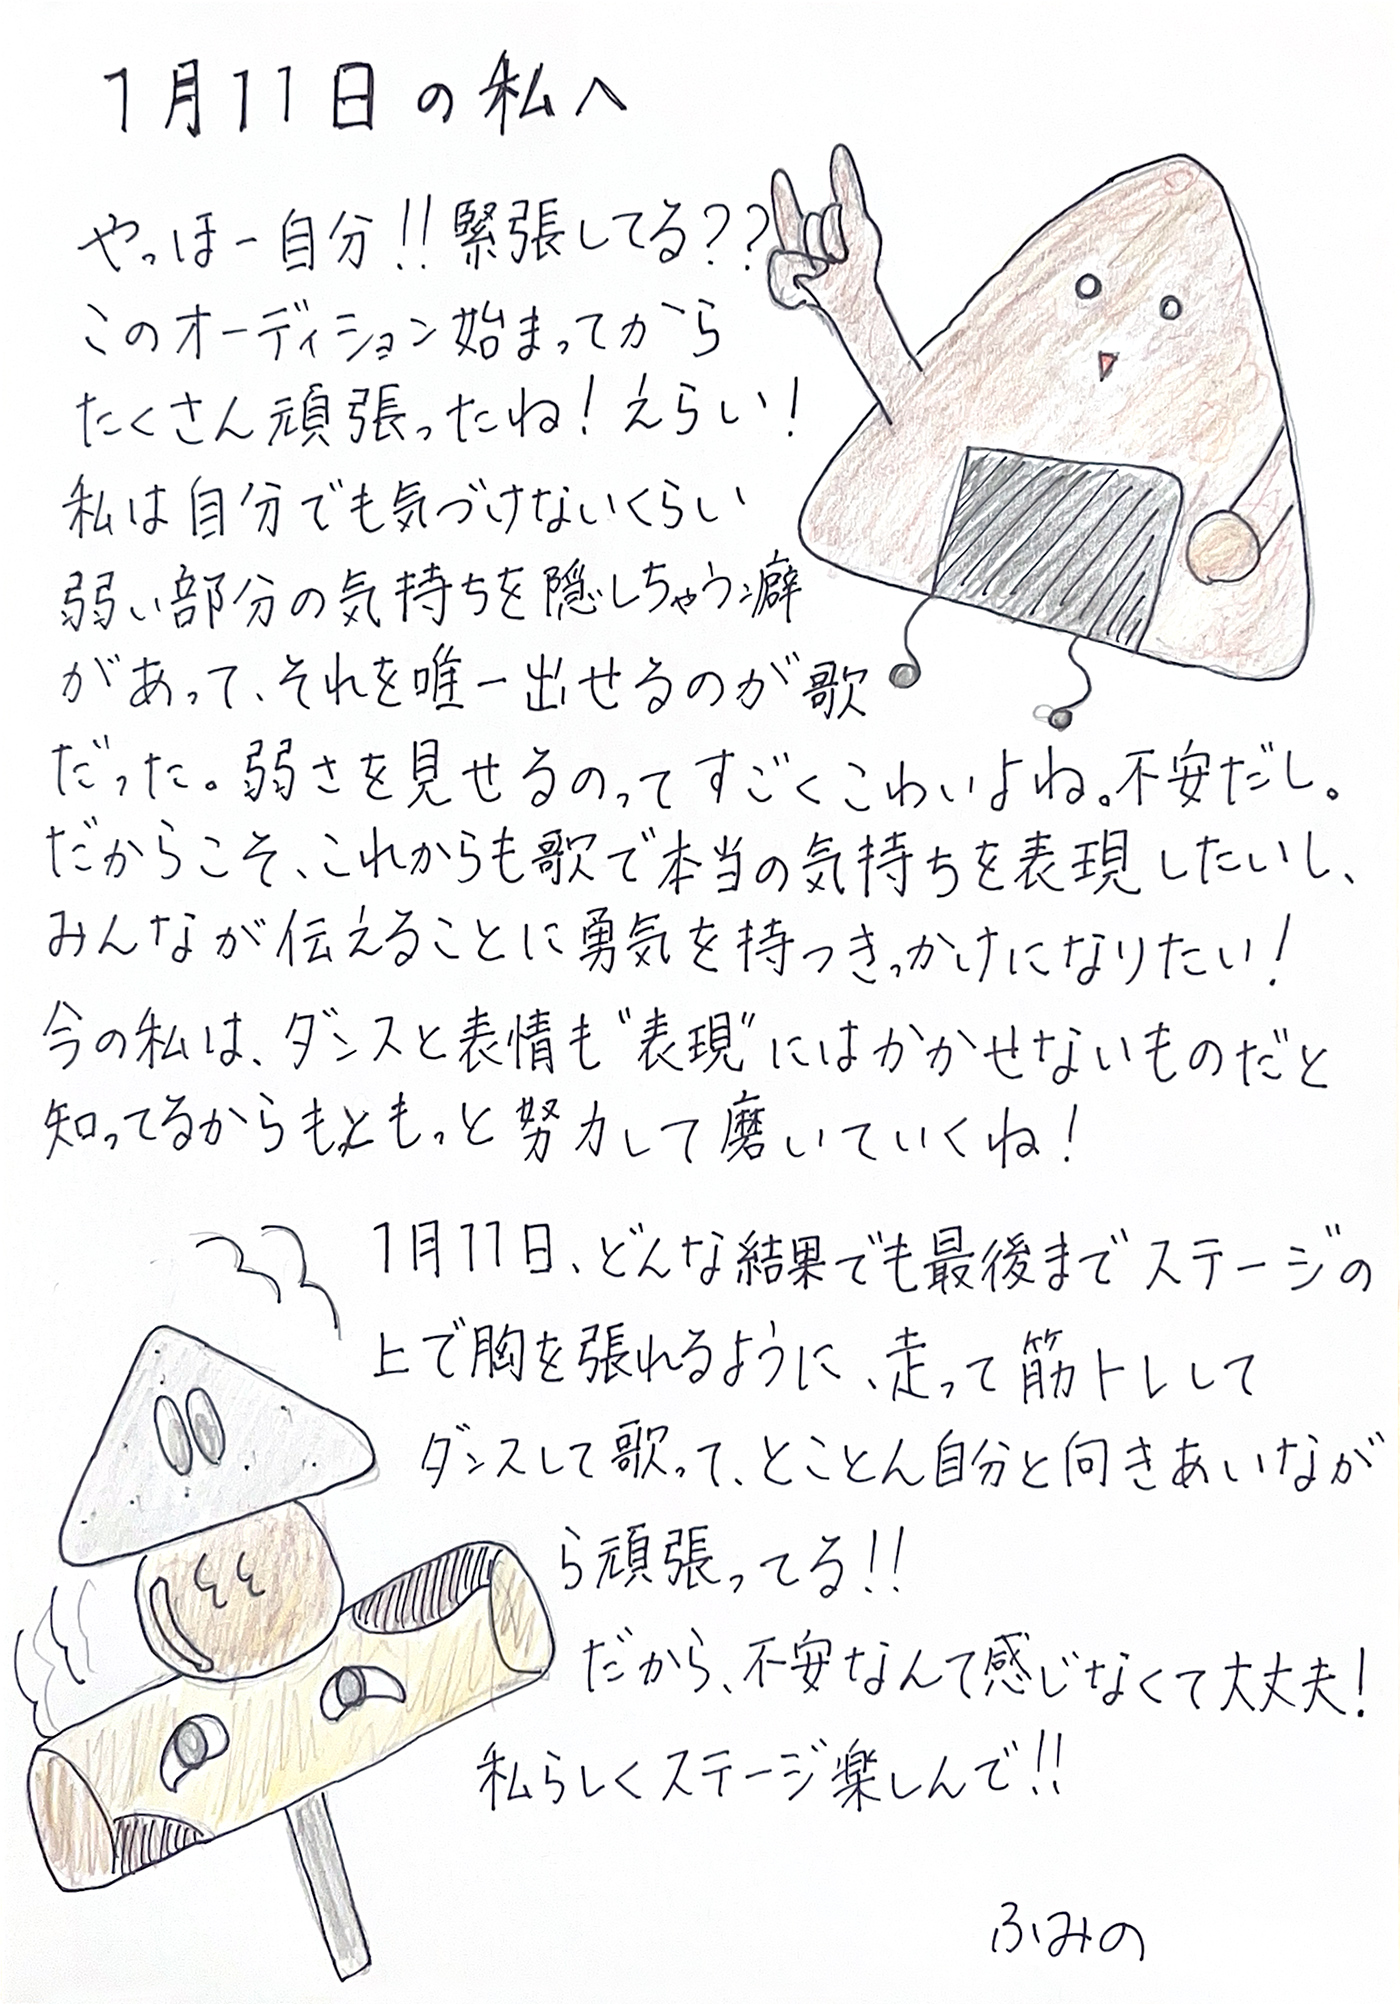 1月11日の私へ
やっほー自分!!緊張してる??
このオーディション始まってから
たくさん頑張ったね！えらい！
私は自分でも気づけないくらい
弱い部分の気持ちを隠しちゃう癖
があって、それを唯一出せるのが歌
だった。弱さを見せるのってすごくこわいよね。不安だし。
だからこそ、これからも歌で本当の気持ちを表現したいし、
みんなが伝えることに勇気を持つきっかけになりたい！
今の私は、ダンスと表情も"表現"にはかかせないものだと
知ってるからもともっと努力して磨いていくね！
1月11日、どんな結果でも最後までステージの
上で胸を張れるように、走って筋トレして
ダンスして歌って、とことん自分と向きあいなが
ら頑張ってる!!
だから、不安なんて感じなくて大丈夫！
私らしくステージ楽しんで!!
ふみの